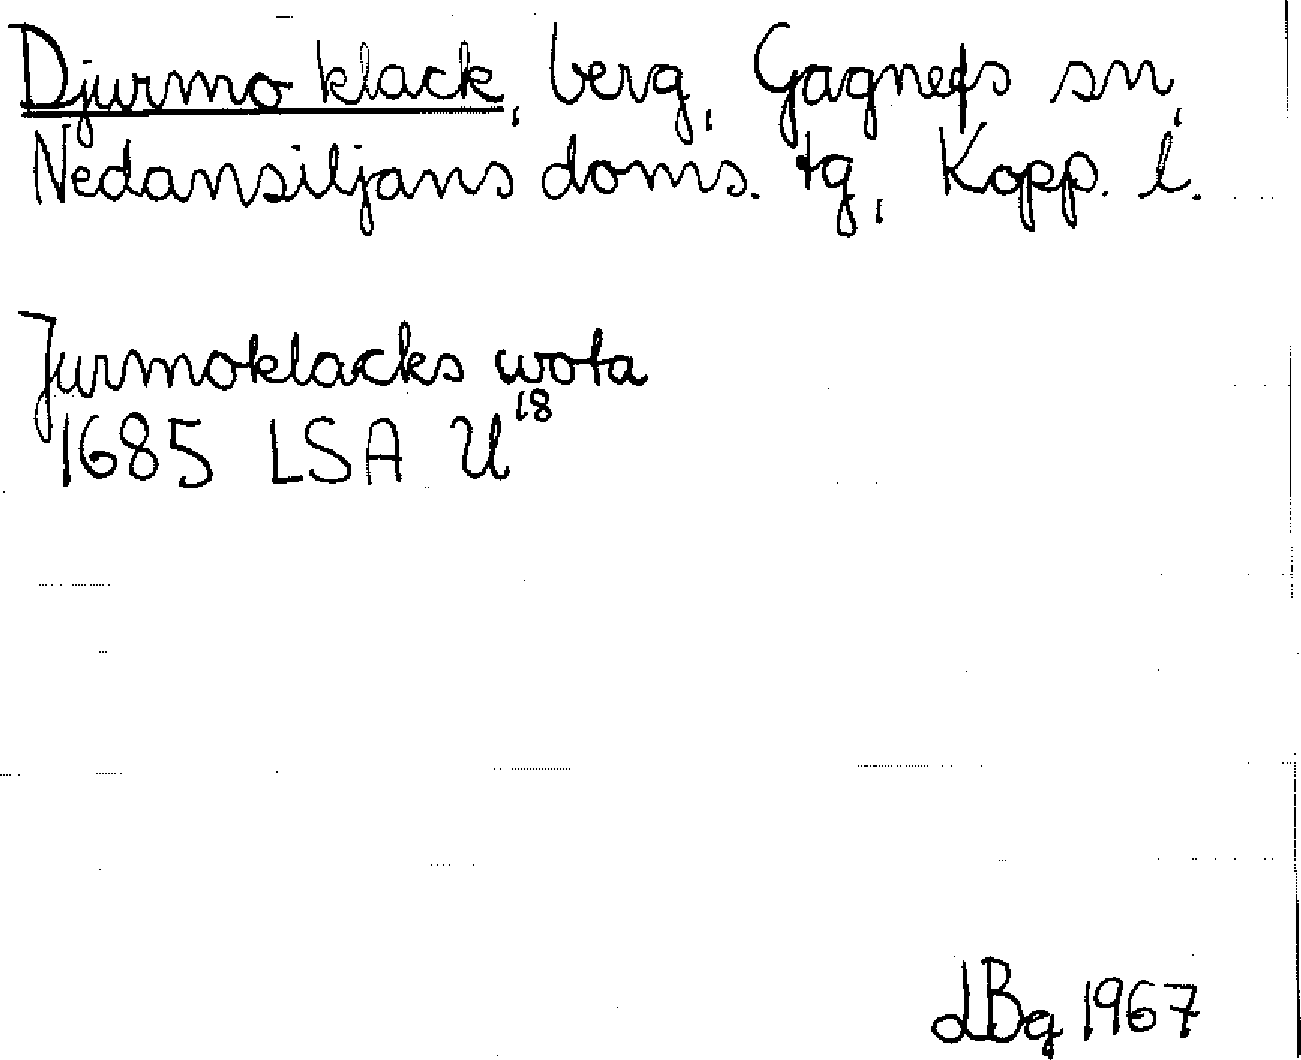 Djurmo klack, berg, Gagnefs sn,
Nedansiljans doms. tg, Kopp. l.
Jurmoklacks wota
1685 LSA U 18
LBg 1967